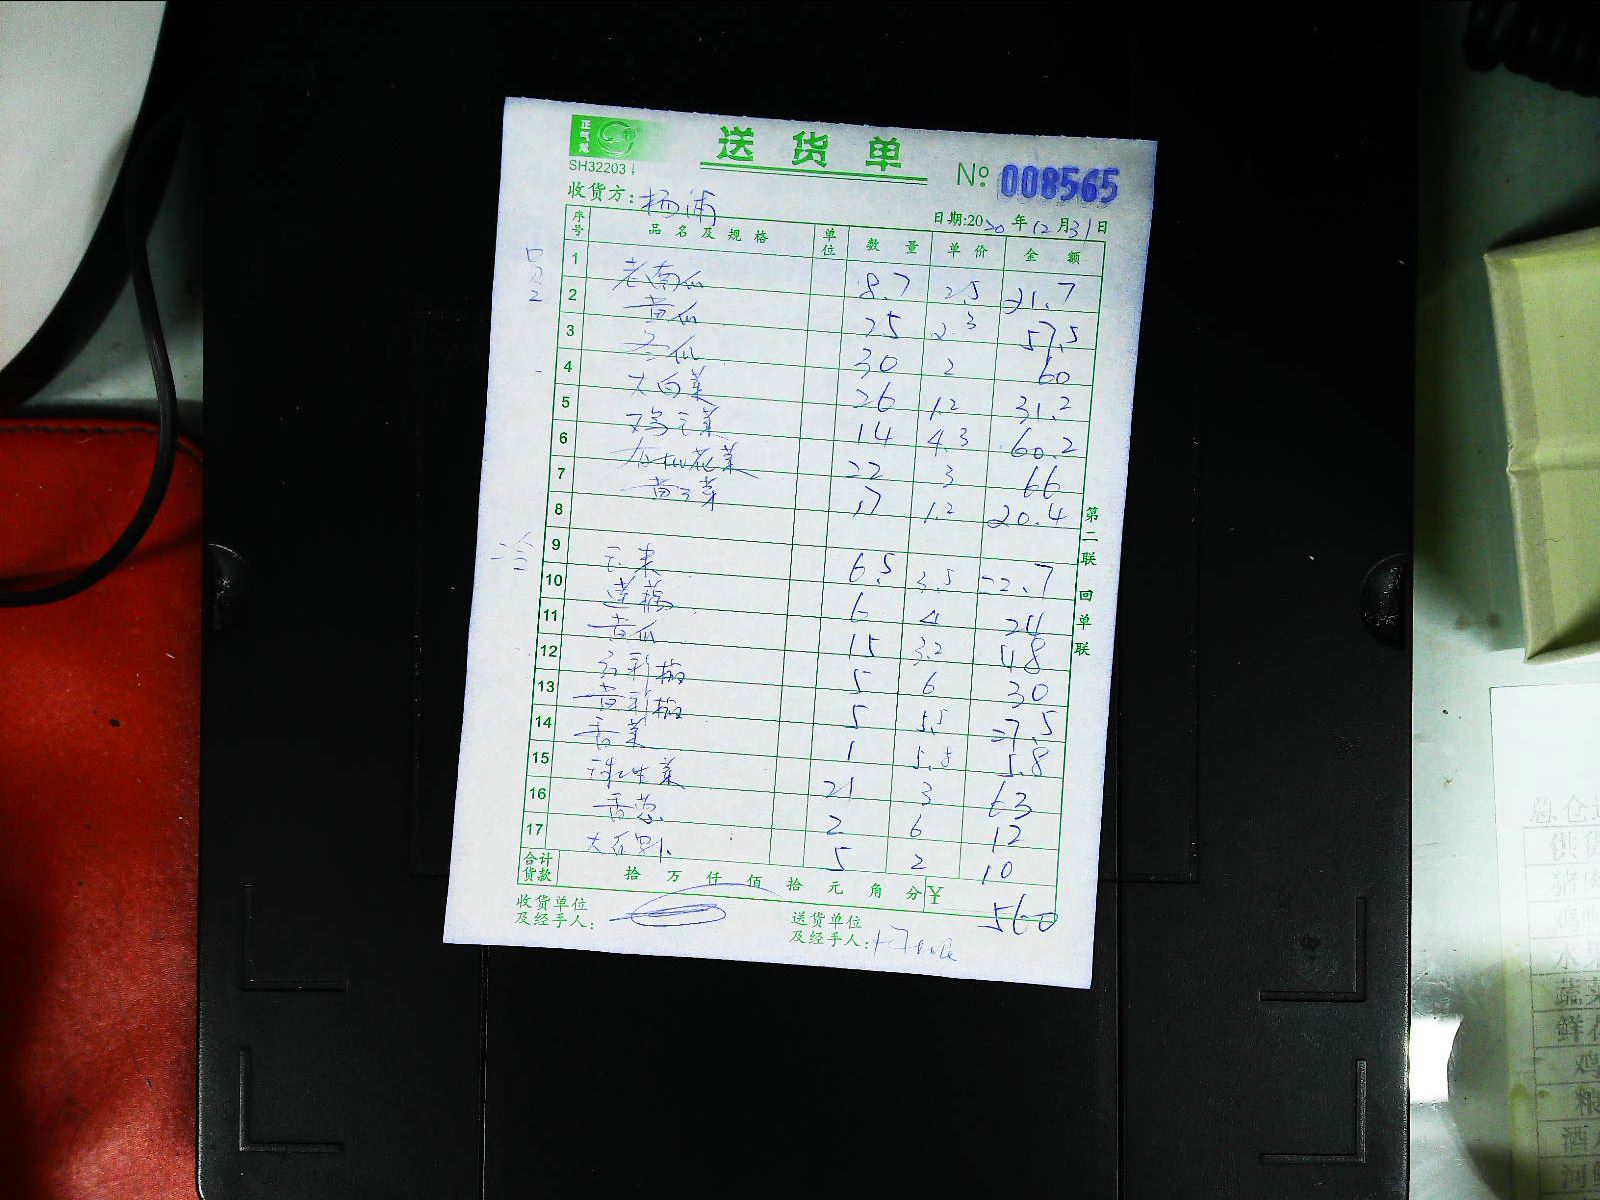 正气龙
送货单
SH32203
№ 008565
收货方: 杨浦
日期:2020年12月31日
序号 品名及规格 单位 数量 单价 金额
1 老南瓜 8.7 2.5 21.7
2 黄瓜 25 2.3 57.5
3 冬瓜 30 2 60
4 大白菜 26 1.2 31.2
5 鸡毛菜 14 4.3 60.2
6 有机花菜 22 3 66
7 黄豆芽 17 1.2 20.4
8
9 玉米 6.5 3.5 22.7
10 莲藕 6 4 24
11 黄瓜 15 3.2 48
12 红彩椒 5 6 30
13 黄彩椒 5 5.5 27.5
14 香菜 1 5.8 5.8
15 球生菜 21 3 63
16 香葱 2 6 12
17 大石别 5 2 10
合计货款 拾 万 仟 佰 拾 元 角 分 ¥ 560
收货单位及经手人:
送货单位及经手人:
第二联 回单联
总仓
供货
鸡鸭
水果
蔬菜
鲜
鸡
粮
酒
河鲜